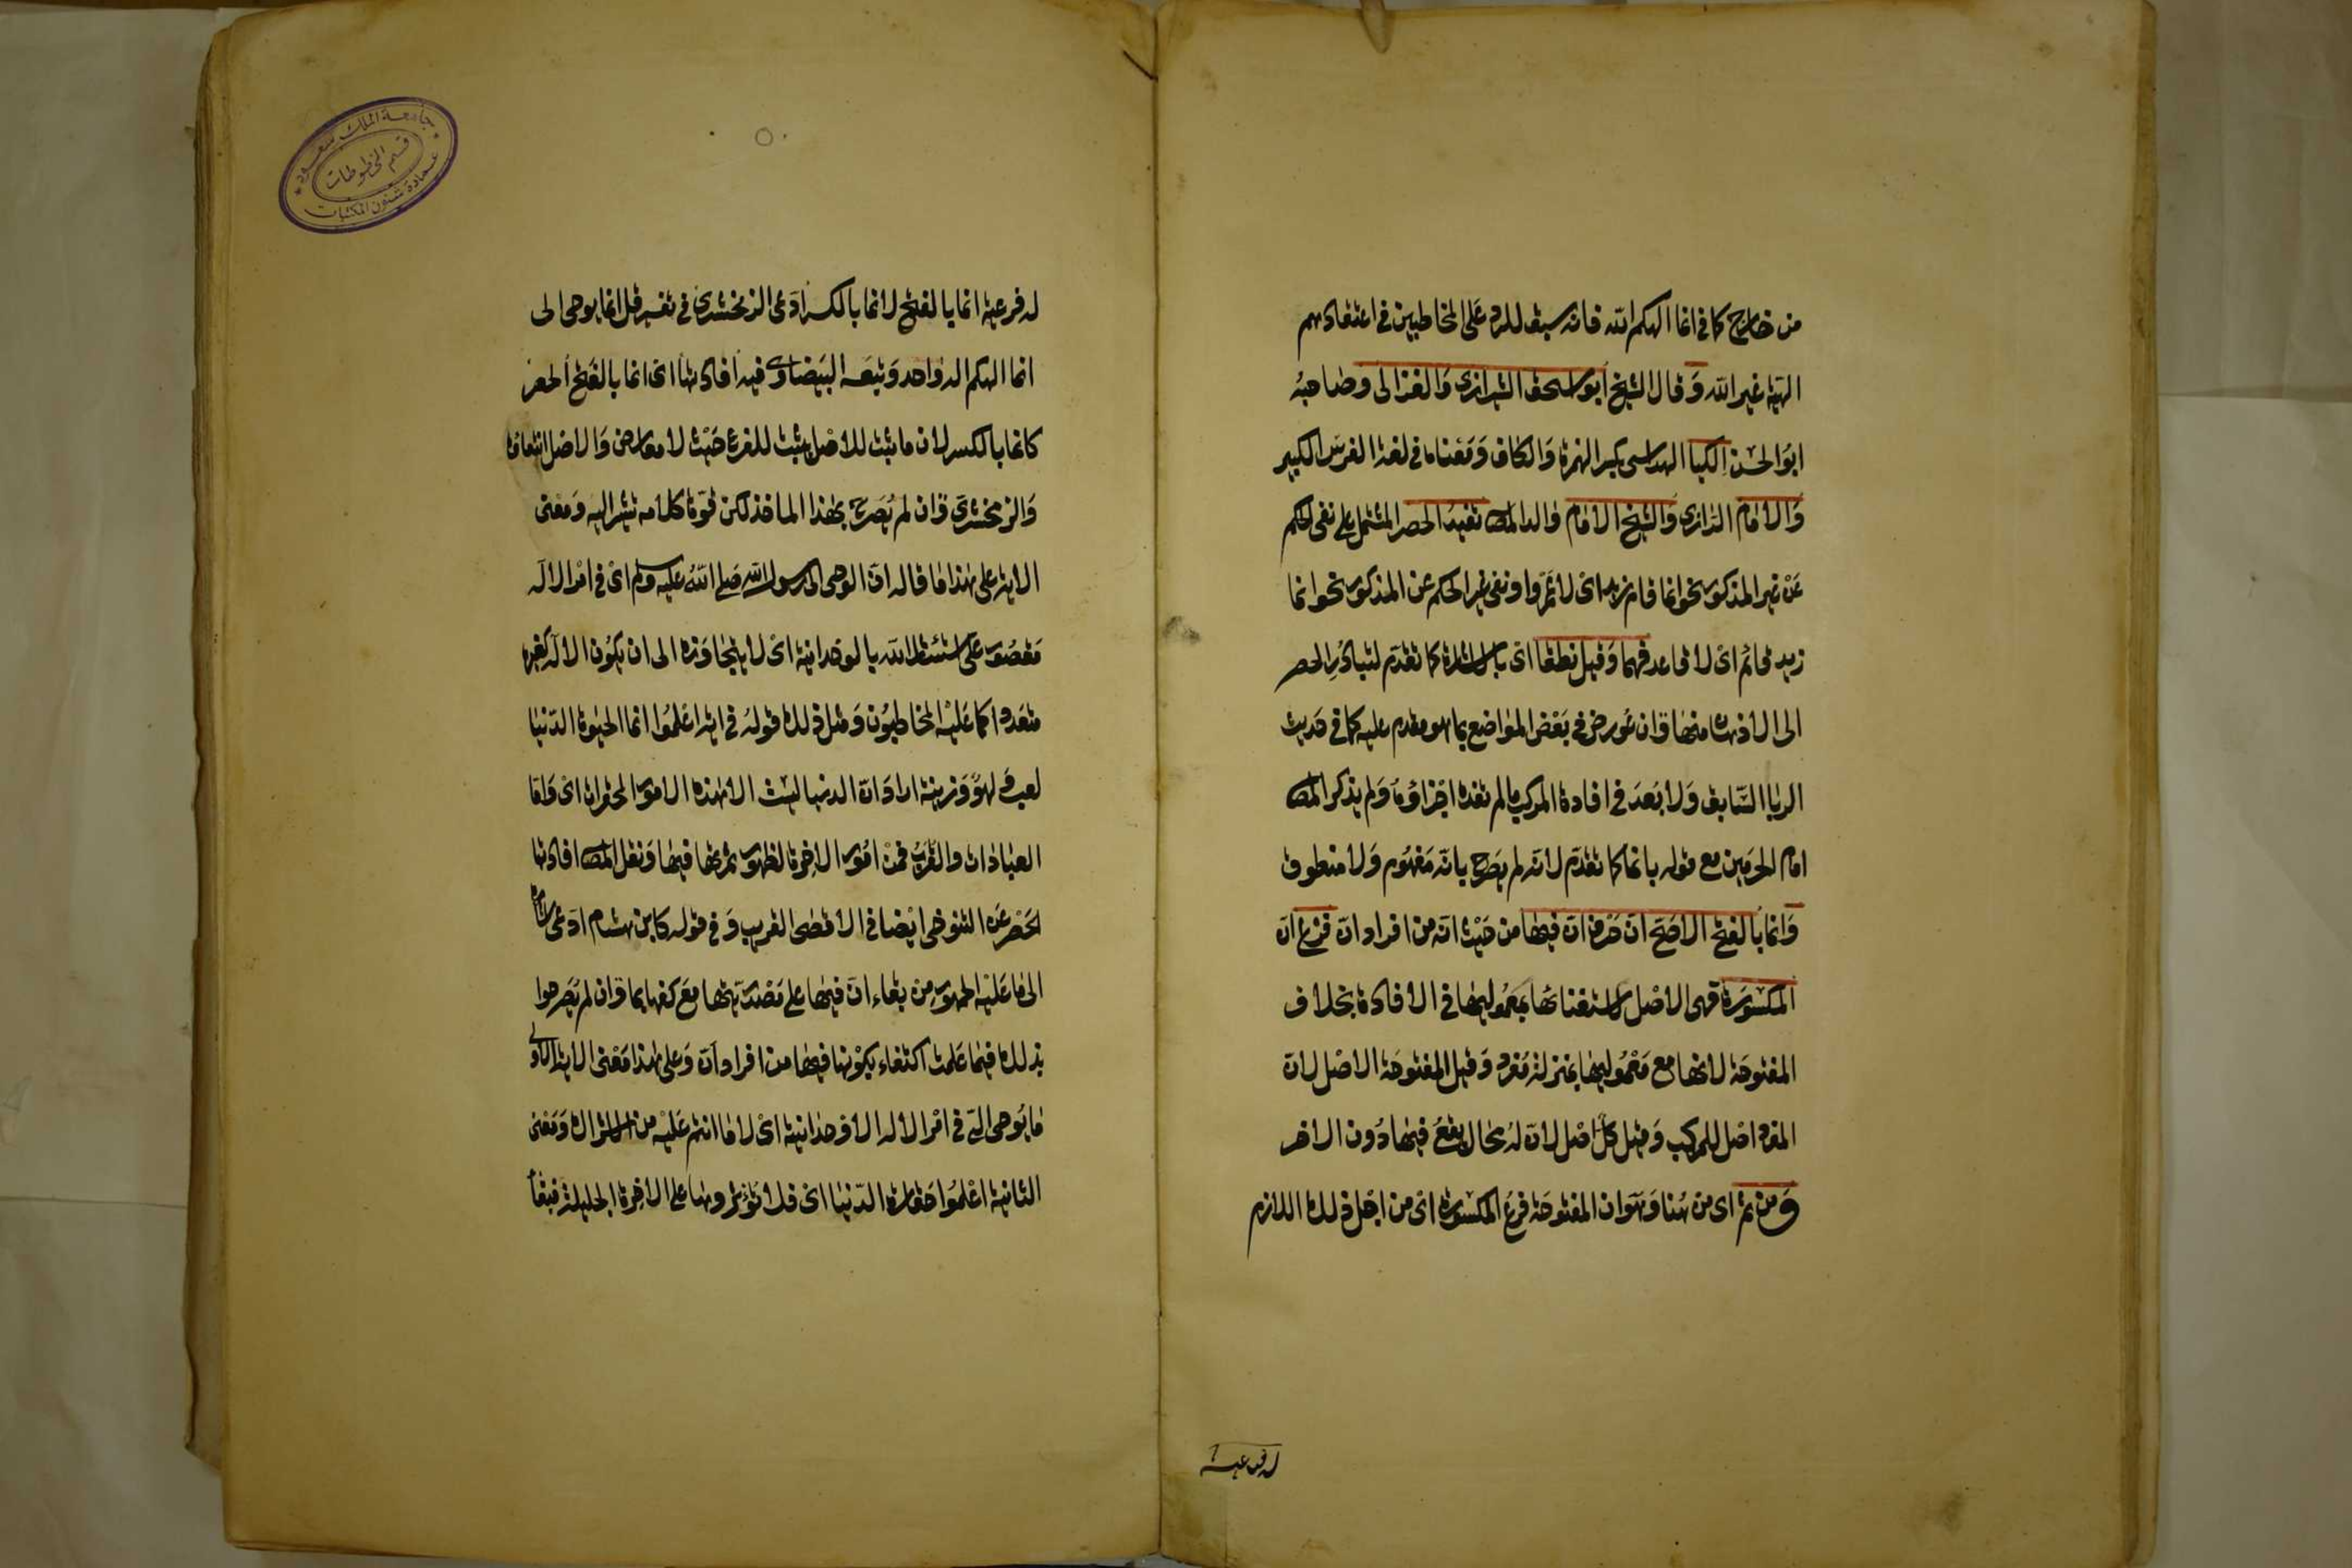 من خارج كما في انما الهكم الله فانه سيق للرد على المخاطبين في اعتقادهم
الهية غير الله وقال الشيخ ابو اسحق الشيرازي والغزالى وصاحبه
ابو الحسن الكيا الهراسى بكسر الهمزة والكاف ومعناه في لغة الفرس الكبير
والامام الرازي والشيخ الامام والد المص تفيد الحصر المشتمل على نفى الحكم
عن غير المذكور نحو انما قام زيد اى لا عمرو او نفى غير الحكم عن المذكور نحو انما
زيد قائم اى لا قاعد فهما وقيل نطقا اى بالاشارة كما تقدم لتبادر الحصر
الى الاذهان منها وان عورض في بعض المواضع بما هو مقدم عليه كما في حديث
الربا السابق ولا بعد في افادة المركب ما لم تفده اجزاؤه ولم يذكر المص
امام الحرمين مع قوله بانما كما تقدم لانه لم يصرح بانه مفهوم ولا منطوق
وانما بالفتح الاصح ان حرف ان فيها من حيث انه من افراد ان فرع ان
المكسورة فهى الاصل لاستغنائها بمعموليها في الافادة بخلاف
المفتوحة لانها مع معموليها بمنزلة مفرد وقيل المفتوحة الاصل لان
المفرد اصل للمركب وقيل كل اصل لان له محال يقع فيها دون الاخر
ومن ثم اى من هنا وهو ان المفتوحة فرع المكسورة اى من اجل ذلك اللازم
له فرعية
له فرعية انما بالفتح لانما بالكسر ادعى الزمخشري في تفسير قل انما يوحى الى
انما الهكم اله واحد وتبعه البيضاوى فيه افادتها اى انما بالفتح الحصر
كانما بالكسر لان ما ثبت للاصل يثبت للفرع حيث لا معارض والاصل انتفاؤه
والزمخشري وان لم يصرح بهذا الماخذ لكن قوة كلامه تشير اليه ومعنى
الاية على هذا ما قاله ان الوحى الى رسول الله صلى الله عليه وسلم اى في امر الاله
مقصور على استئثار الله بالوحدانية اى لا يتجاوزه الى ان يكون الاله كغيره
متعددا كما عليه المخاطبون ومثل ذلك قوله في اية اعلموا انما الحيوة الدنيا
لعب ولهو وزينة اراد ان الدنيا ليست الا هذه الامور المحقرات اى واما
العبادات والقرب فمن امور الاخرة لظهور ثمرتها فيها ونقل المص افادتها
الحصر عن التنوخى ايضا في الاقصى القريب وفي قوله كابن هشام ادعى اشارة
الى ما عليه الجمهور من بقاء ان فيها على مصدريتها مع كفها بما وان لم يصرحوا
بذلك فيما علمت اكتفاء بكونها فيها من افراد ان وعلى هذا معنى الاية الاولى
ما يوحى الي في امر الاله الا وحدانيته اى لا ما انتم عليه من الاشراك ومعنى
الثانية اعلموا حقارة الدنيا اى فلا تؤثروها على الاخرة الجليلة فبقاء
جامعة الملك سعود
قسم المخطوطات
عمادة شئون المكتبات